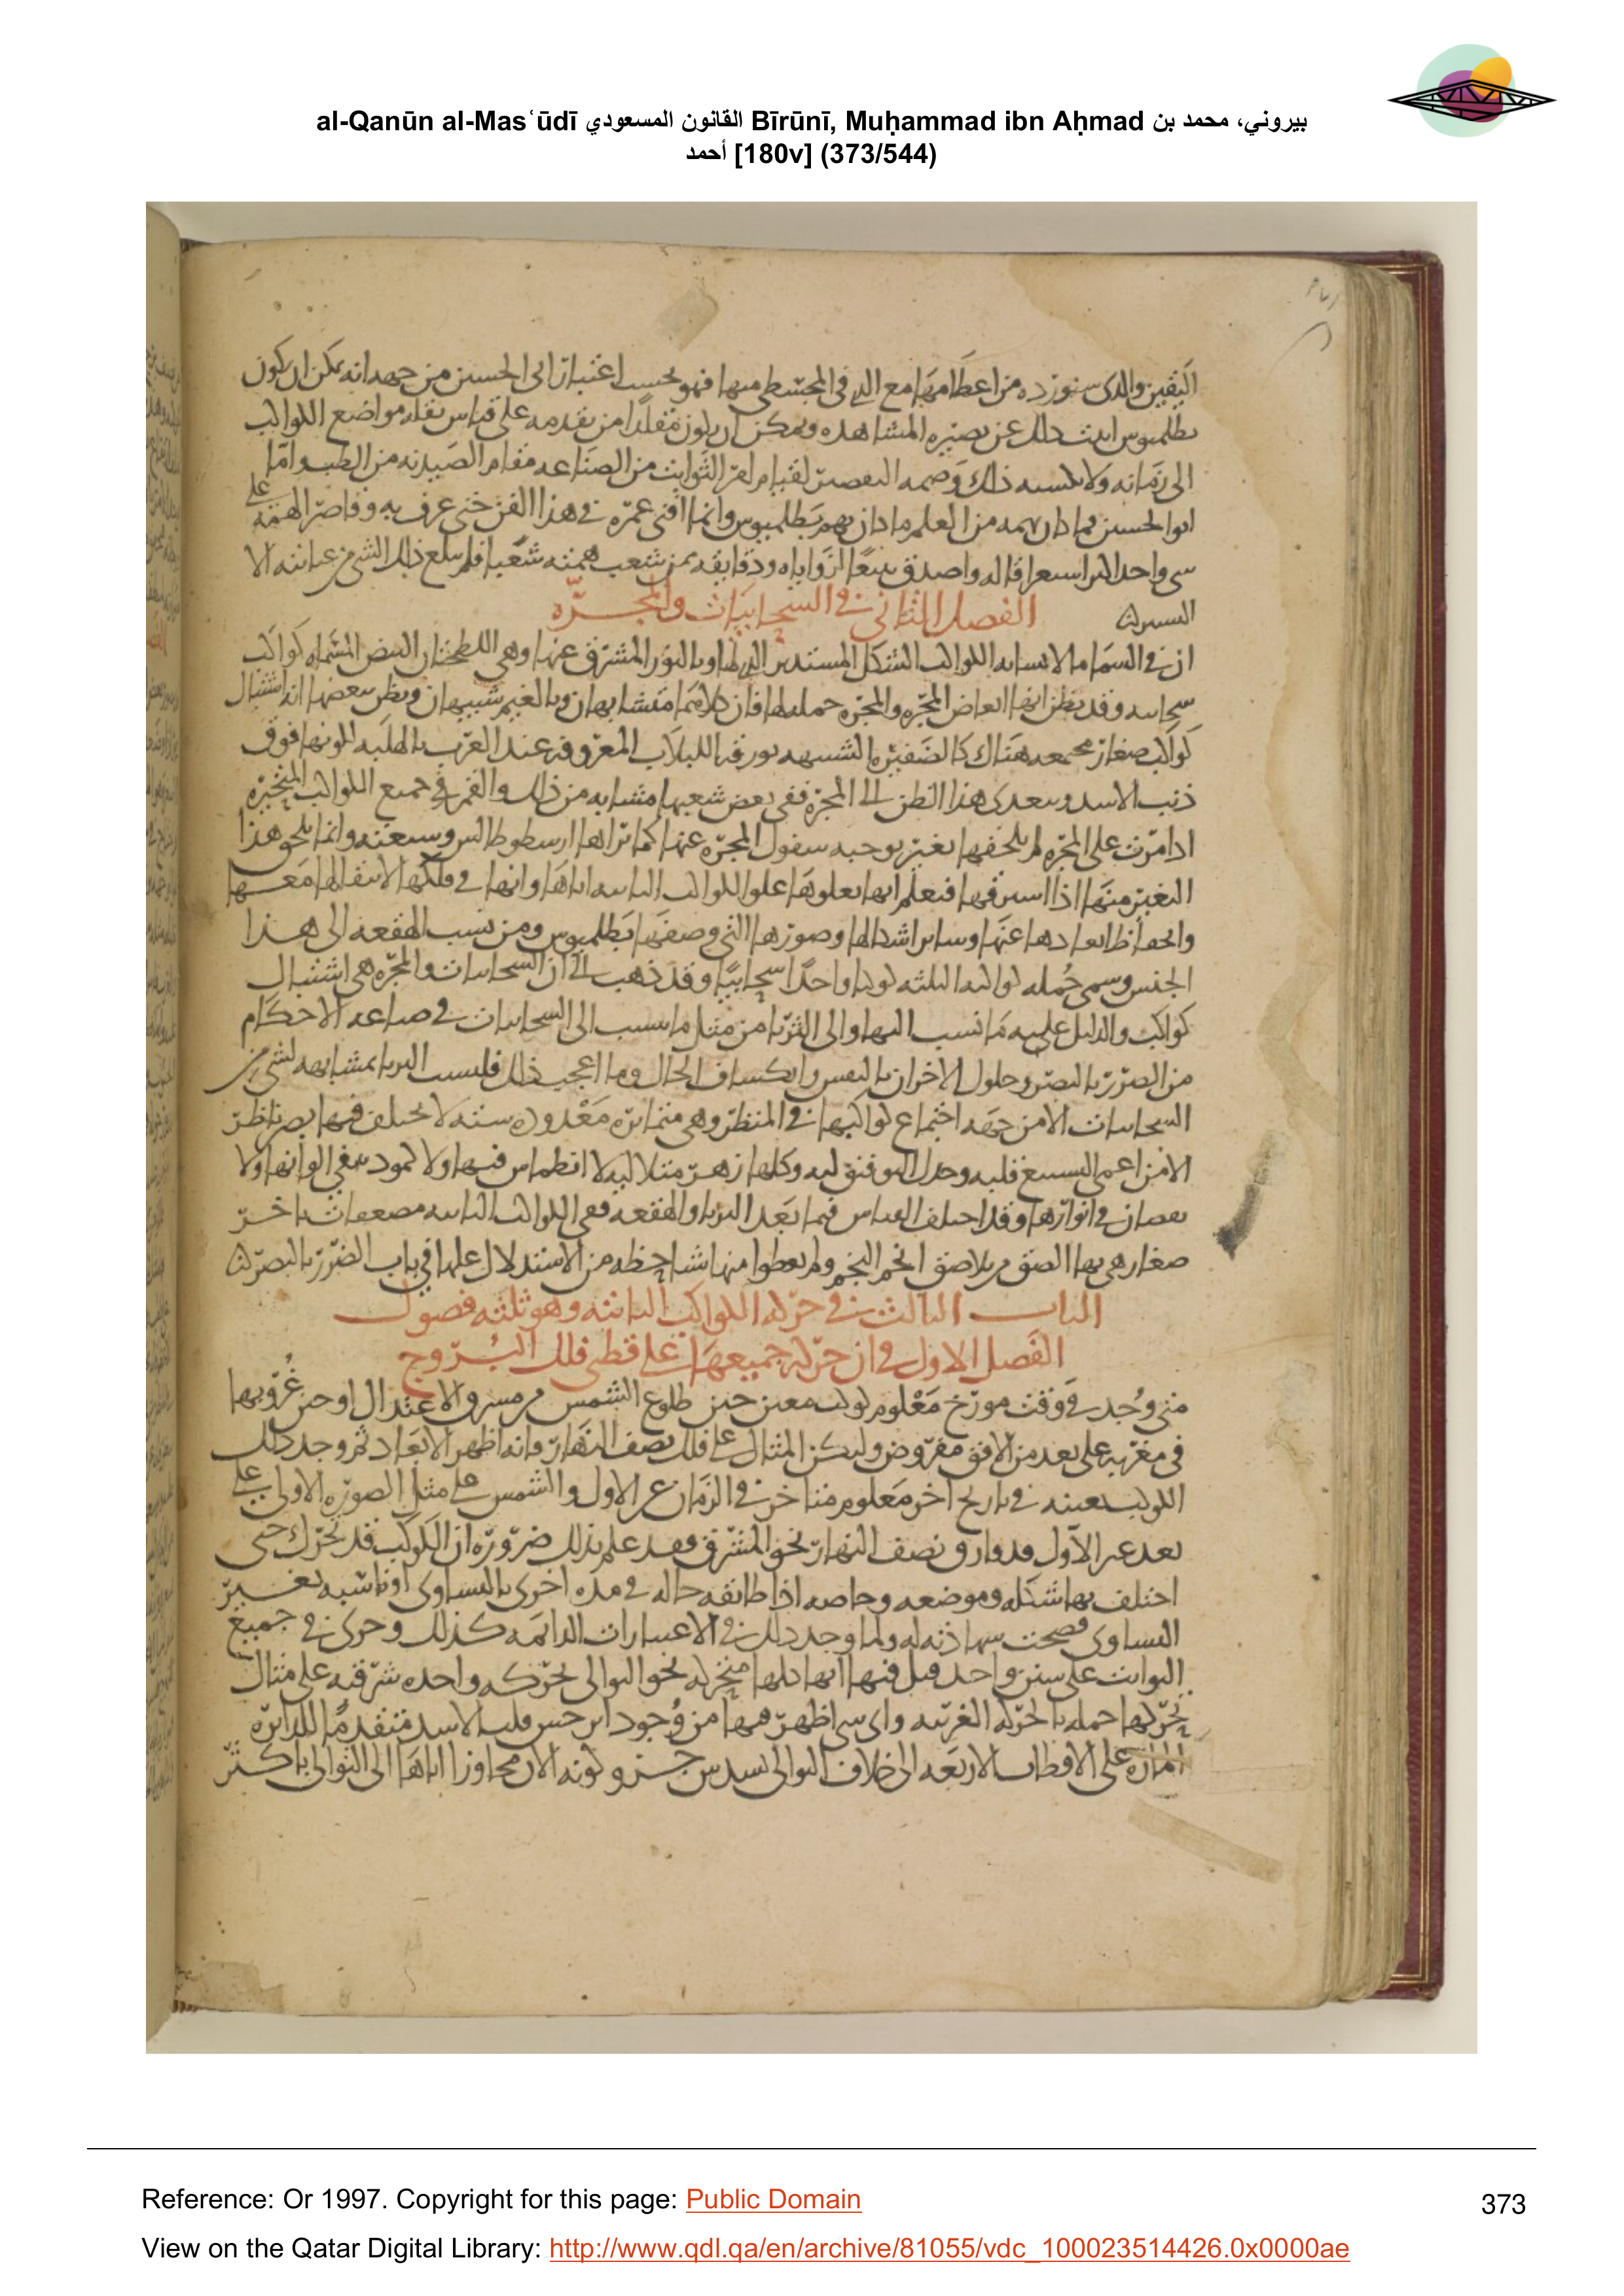 al-Qanūn al-Masʿūdī القانون المسعودي Bīrūnī, Muḥammad ibn Aḥmad بيروني، محمد بن
أحمد [180v] (373/544)
اليقين والذي سنورده من اعظامها مع الذي في المجسطي منها فهو بحسب اعتبار ابى الحسين من جهه انه يمكن ان يكون
بطلميوس اثبت ذلك عن بصيره المشاهده ويمكن ان يكون مقلدا من تقدمه على قياس نقله مواضع الكواكب
الى زمانه ولا ذلك وصمه لقيام امر الثوابت من الصناعه مقام الصيدنه من الطب واما
ابو الحسين فما كان همه من العلم ما كان يهم بطلميوس وانما افنى عمره في هذا الفن حتى عرف به وقاصر الهمه على
شي واحد اكبر واصدق تتبعا لزواياه ودقايقه ممن تشعب همته شعبا فلم ذلك الشي من عنايته الا
اليسير
الفصل الثاني في السحابيات والمجره
ان في السما ما لا يشابه الكواكب الشكل المستدير وبالنور المشرق عنها وهي اللطخات البيض المسماه كواكب
سحابيه وقد يظن انها ابعاض المجره والمجره جملتها فان كلاهما متشابهان وبالغيم شبيهان ويظن ببعضها انه اشتباك
كواكب صغار مجتمعه هناك كالضفيره الشبيهه بورقه اللبلاب المعروفه عند العرب بالهلبه لكونها فوق
ذنب الاسد ويتعدى هذا الظن الى المجره ففي بعض شعبها مشابه من ذلك والقمر في جميع الكواكب المتحيره
اذا مرت على المجره لم يلحقها تغير يوجبه سفول المجره عنها كما يراها ارسطوطالس وشيعته وانما يلحق هذا
التغير منها اذا فيعلم انها يعلوها علو الكواكب الثابته اياها وانها في فلكها لانتقالها معها
وانحفاظ ابعادها عنها وساير اشكالها وصورها التي وصفها بطلميوس ومن نسب الهقعه الى هذا
الجنس وسمى جمله كواكبه الثلثه كوكبا واحدا سحابيا وقد ذهب الى ان السحابيات والمجره هي اشتباك
كواكب والدليل عليه ما نسب اليها والى الثريا من مثل ما ينسب الى السحابيات في صناعه الاحكام
من الضرر بالبصر وحلول الاخران بالنفس وانكساف الحال وما اعجب ذلك فليست الثريا بمشابهه لشي من
السحابيات الا من جهه اجتماع كواكبها في المنظر وهي متمايزه معدوده سته لا يختلف فيها بصر ناظر
الا من اعمى قلبه وكلها زهر متلاليه لا انطماس فيها ولا كمود في الوانها ولا
نقصان في انوارها وقد اختلف القياس فيما بعد الثريا والهقعه ففي الكواكب الثابته مضعفات باخر
صغار هي بها الصق من تلاصق انجم النجم ولم يعطوا منها شيا حظه من الاستدلال عليها في باب الضرر بالبصر
الباب الثالث في حركه الكواكب الثابته وهو ثلثه فصول
الفصل الاول في ان حركه جميعها على قطبي فلك البروج
متى وجد في وقت مورخ معلوم كوكب معين حين طلوع الشمس من مشرق الاعتدال او حين غروبها
في مغربه على بعد من الافق مفروض وليكن المثال على فلك نصف النهار فانه اظهر الابعاد ثم وجد ذلك
الكوكب بعينه في تاريخ اخر معلوم متاخر في الزمان عن الاول والشمس على مثل الصوره الاولى على
بعد غير الاول قد فارق نصف النهار نحو المشرق فقد علم بذلك ضروره ان الكوكب قد تحرك حتى
اختلف بها شكله وموضعه وخاصه اذا طابقه حاله في مده اخرى بالتساوى او ناسبه بغير
التساوى فصحت شهادته له ولما وجد ذلك في الاعتبارات الدائمه كذلك وجرى في جميع
الثوابت على سنن واحد قيل فيها انها كلها متحركه نحو التوالى بحركه واحده شرقيه على مثال
تحركها جمله بالحركه الغربيه واى شي اظهر فيها من وجود ابرخس قلب الاسد متقدما للدايره
الماره على الاقطاب الاربعه الى خلاف التوالى بسدس جزو وكونه الان مجاوزا اياها الى التوالى باكثر
Reference: Or 1997. Copyright for this page: Public Domain
373
View on the Qatar Digital Library: http://www.qdl.qa/en/archive/81055/vdc_100023514426.0x0000ae